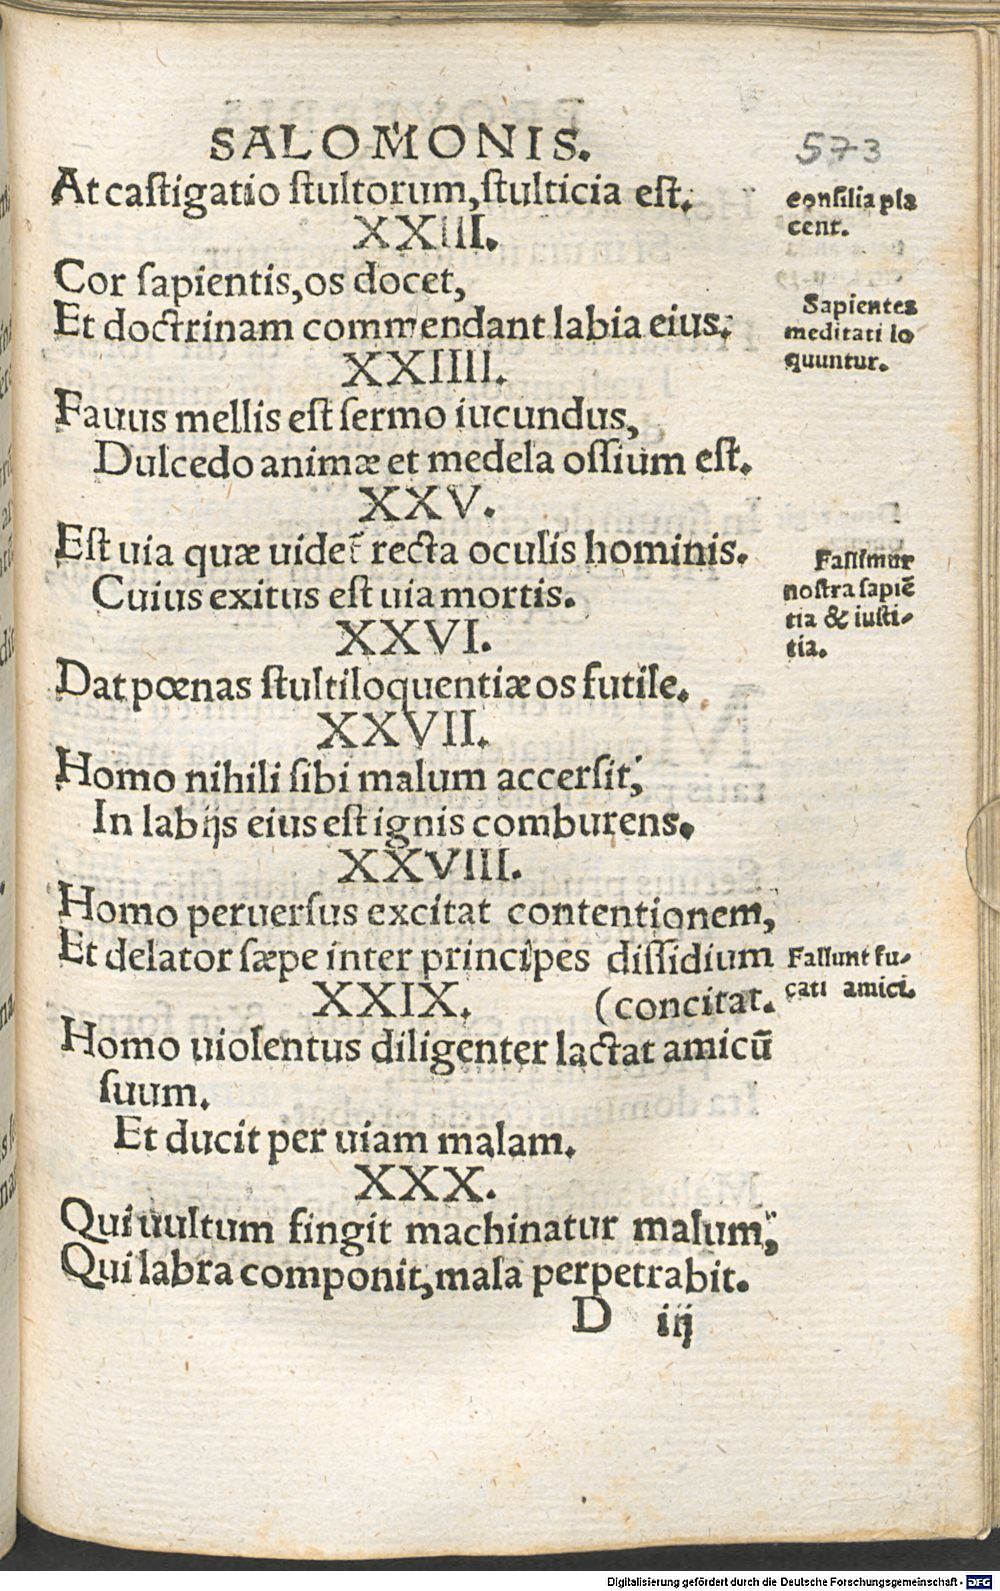 SALOMONIS.
573
At castigatio stultorum, stulticia est.
XXIII.
Cor sapientis, os docet,
Et doctrinam commendant labia eius.
XXIIII.
Fauus mellis est sermo iucundus,
Dulcedo animæ et medela ossium est.
XXV.
Est uia quæ uidet̃ recta oculis hominis.
Cuius exitus est uia mortis.
XXVI.
Dat pœnas stultiloquentiæ os futile.
XXVII.
Homo nihili sibi malum accersit,
In labijs eius est ignis comburens.
XXVIII.
Homo peruersus excitat contentionem,
Et delator sæpe inter principes dissidium
XXIX. (concitat.
Homo uiolentus diligenter lactat amicū
suum.
Et ducit per uiam malam.
XXX.
Qui uultum fingit machinatur malum,
Qui labra componit, mala perpetrabit.
D iij
consilia pla
cent.
Sapientes
meditati lo
quuntur.
Fallimur
nostra sapiē
tia & iusti-
tia.
Fallunt fu-
cati amici.
Digitalisierung gefördert durch die Deutsche Forschungsgemeinschaft - DFG